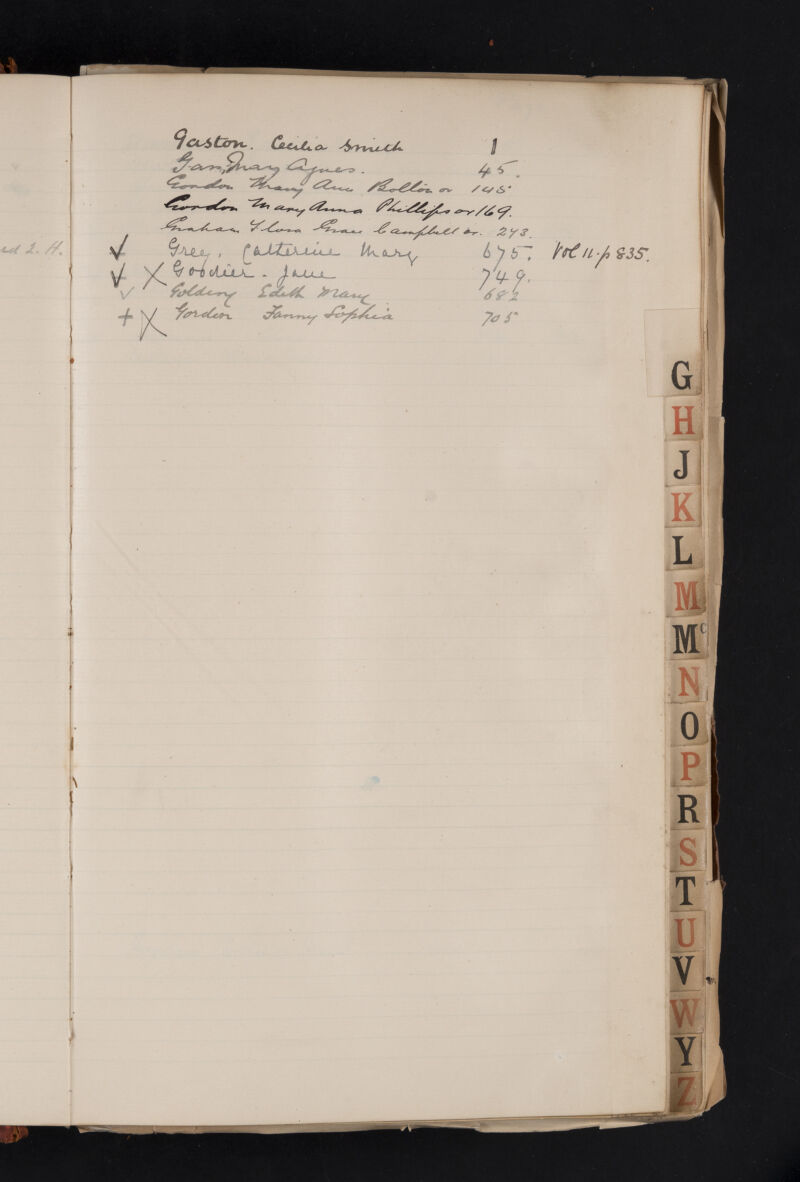 Gaston. Cecilia Smith 1
Gan, Mary Agnes. 45.
Gordon Mary Ann Bolton or 145
Gordon Mary Anna Phillips or 169.
Graham Flora Grace Campbell or. 273.
ed L. H.
✓ Grey, Catherine Mary 675. Vol 11. p 835.
✓ X Goodier. Jane 749.
✓ Golding Edith Mary 682
+ X Gordon Fanny Sophia 705
G
H
J
K
L
M
Mc
N
O
P
R
S
T
U
V
W
Y
Z